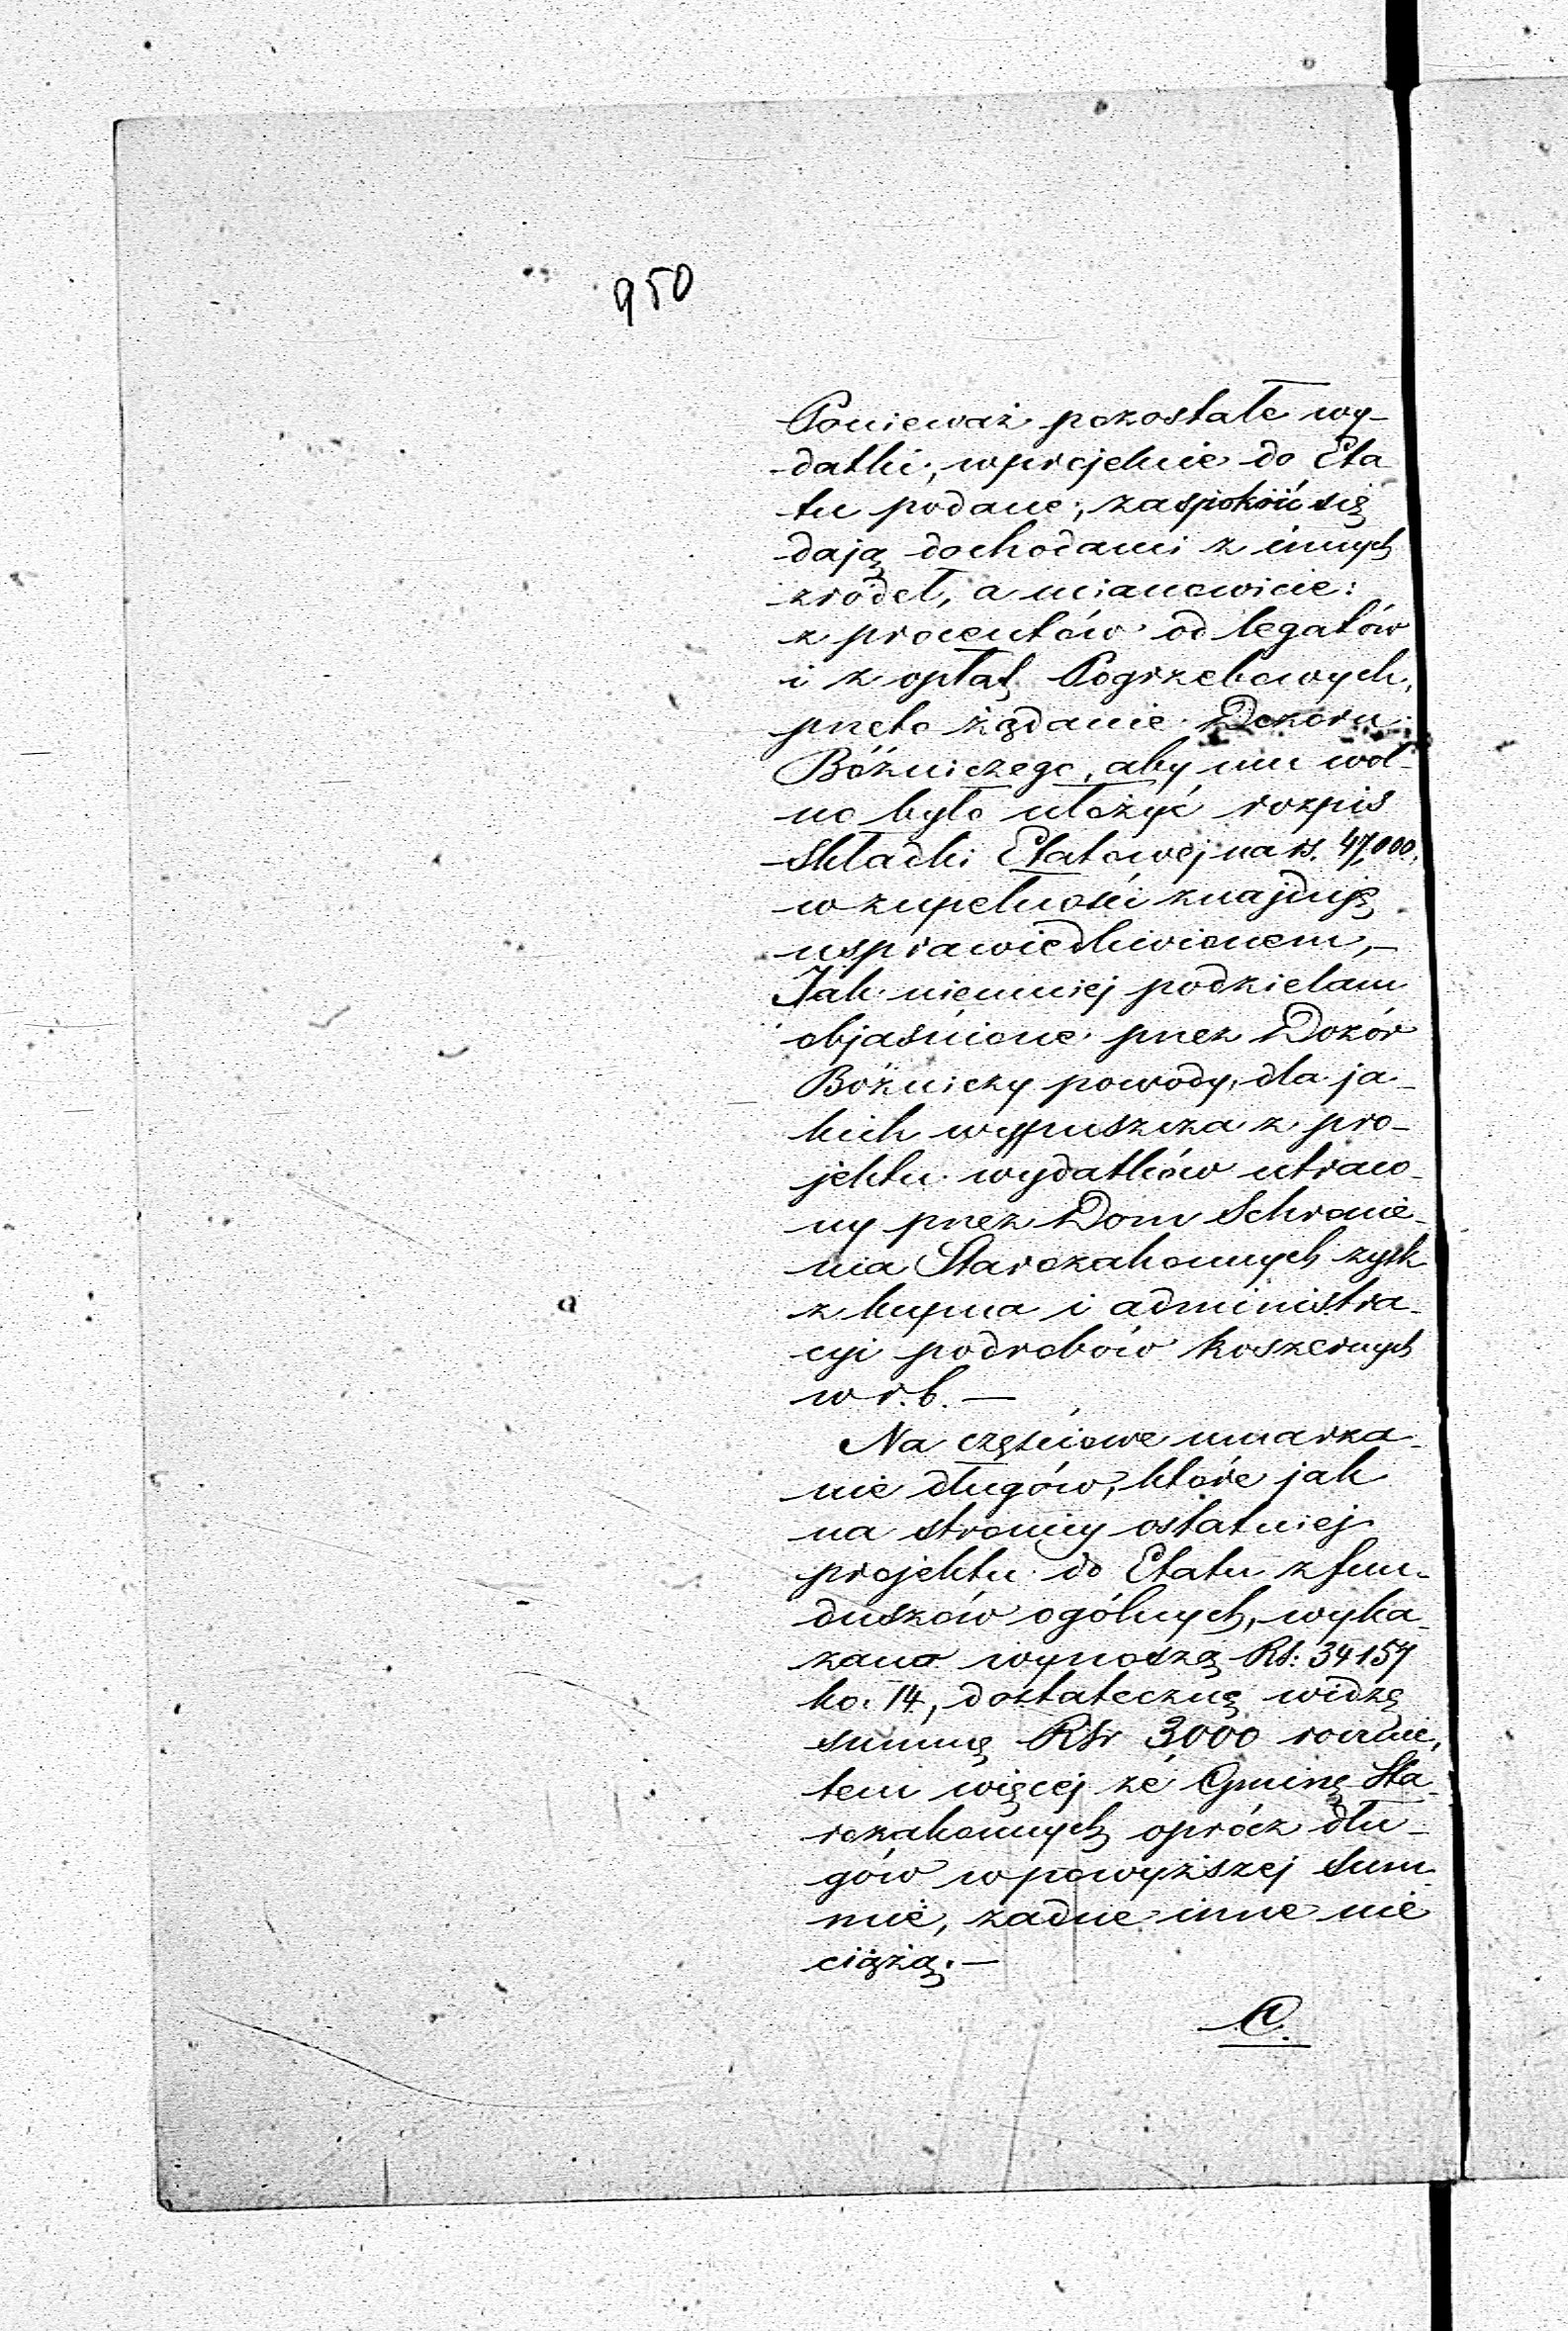 950
Ponieważ pozostałe wy-
datki, w projekcie do Eta
tu podane, zaspokoić się
dają dochodami z innych
zródeł, a mianowicie:
z procentów od legatów
i z opłat Pogrzebowych,
przeto żądanie Dozoru
Bóżniczego, aby mu wol-
no było ułożyć rozpis
Składki Etatowej na rs. 47,000.
w zupełności znajduję
usprawiedliwionem,—
Jak niemniej podzielam
objaśnione przez Dozór
Bóżniczy powody, dla ja-
kich wypuszcza z pro-
jektu wydatków utraco-
ny przez Dom Schronie-
nia Starozakonnych zysk
z kupna i administra-
cyi podrobów koszernych
w r. b.—
Na częściowe umarza-
nie długów, które jak
na stronicy ostatniej
projektu do Etatu z fun-
duszów ogólnych, wyka-
zano wynoszą Rs: 34157
ko. 14, dostateczną widzę
summę Rsr 3000 rocznie,
tem więcej że Gminę Sta-
rozakonnych oprócz dłu-
gów w powyższej sum-
mie, żadne inne nie
ciążą.—